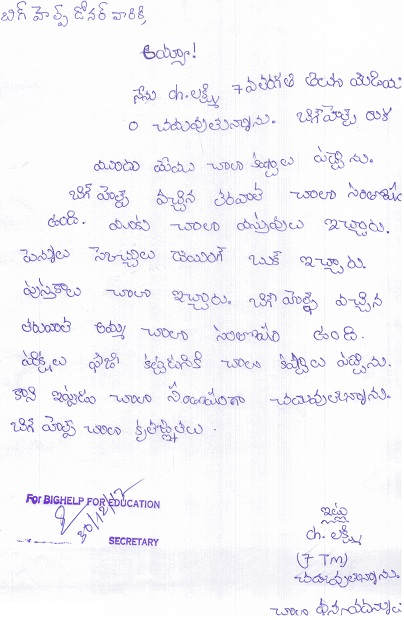 బిగ్ హెల్ప్ డోనర్ వారికి,
అయ్యా!
నేను ch. లక్ష్మి 7వ తరగతి తెలుగు మీడియం
చదువుతున్నాను. బిగ్ హెల్ప్
ముందు మేము చాలా కష్టాలు పడ్డాను.
బిగ్ హెల్ప్ వచ్చిన తరువాత చాలా సంతోషం
ఉంది. మాకు చాలా వస్తువులు ఇచ్చారు.
పెన్నులు డ్రాయింగ్ బుక్ ఇచ్చారు.
పుస్తకాలు చాలా ఇచ్చారు. బిగ్ హెల్ప్ వచ్చిన
తరువాత అమ్మ చాలా సంతోషం ఉంది.
పరీక్షలు ఫీజు కట్టడానికి చాలా కష్టాలు పడ్డాను.
కాని ఇప్పుడు చాలా సంతోషంగా చదువుతున్నాను.
బిగ్ హెల్ప్ చాలా కృతజ్ఞతలు.
For BIGHELP FOR EDUCATION
30/12/17
SECRETARY
ఇట్లు
ch. లక్ష్మి
(7 TM)
చదువుతున్నాను.
చాలా ధన్యవాదములు